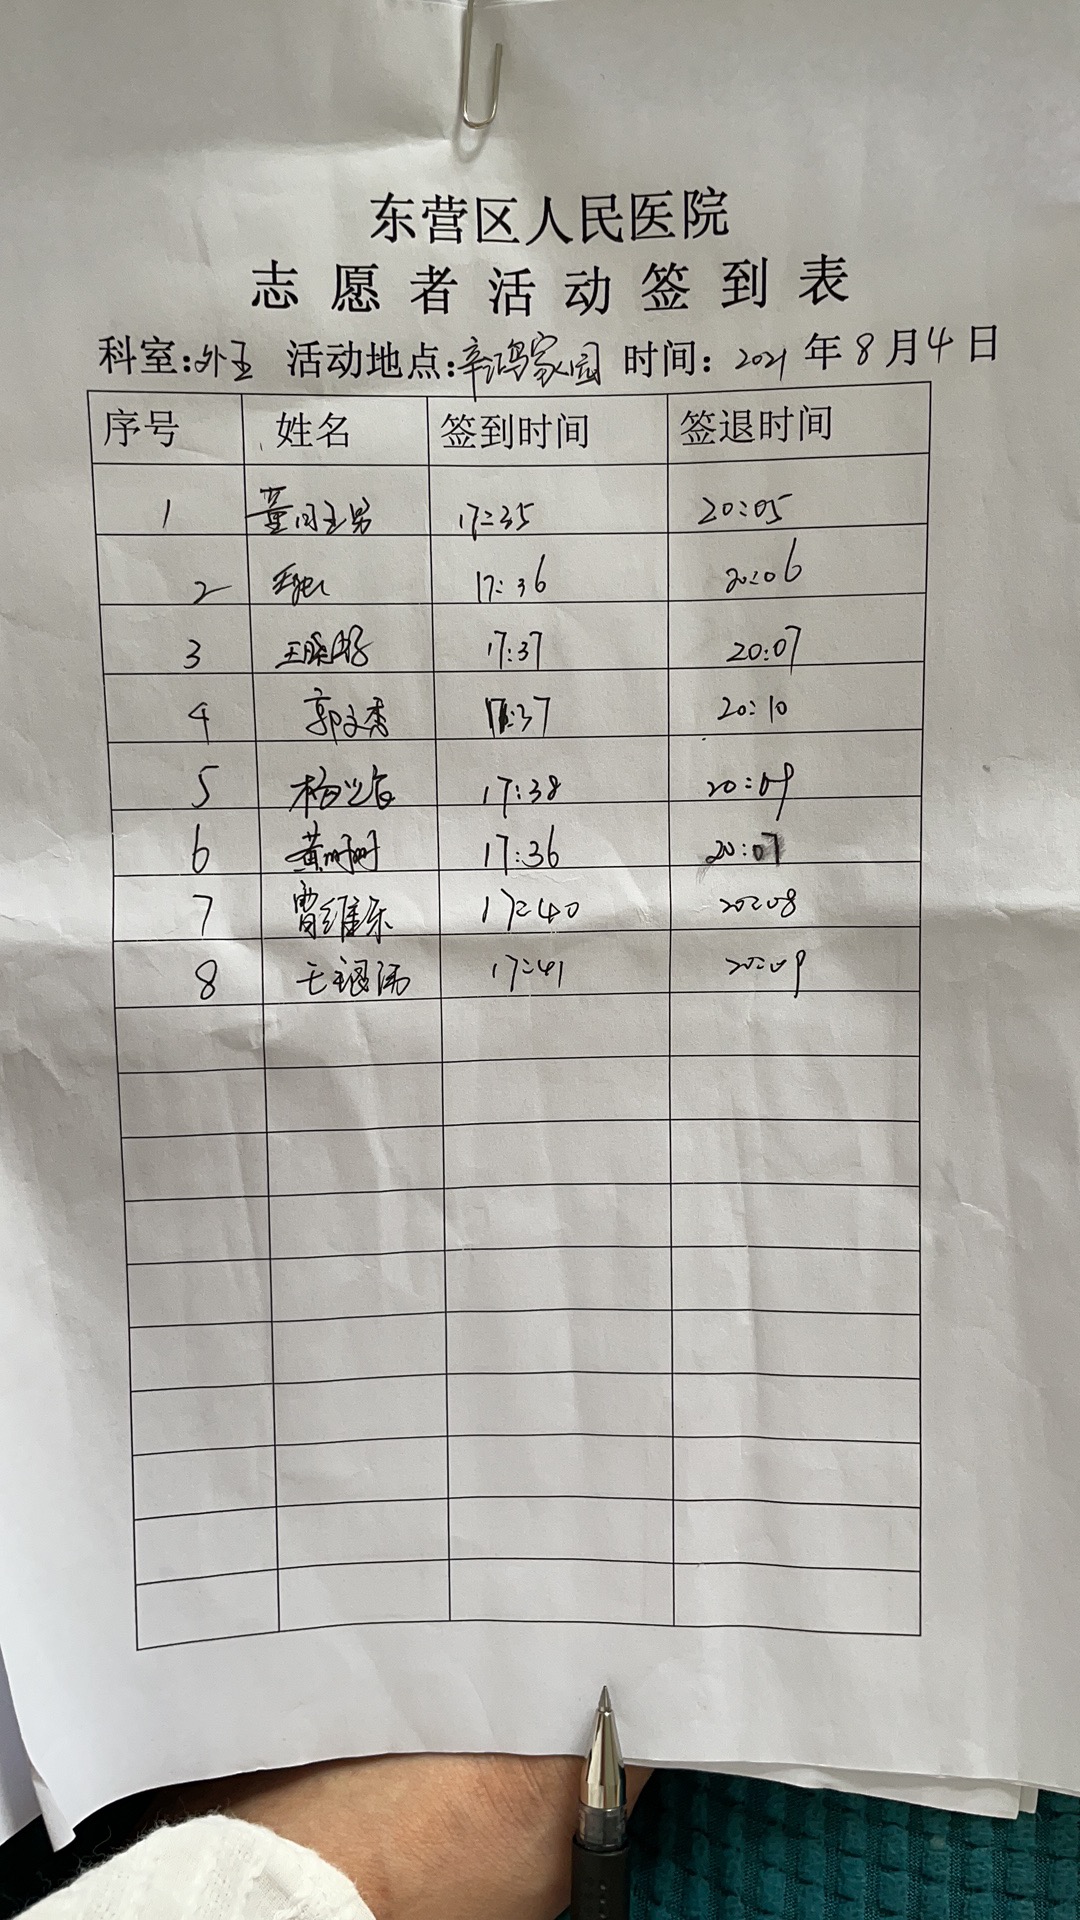 东营区人民医院
志愿者活动签到表
科室:外五 活动地点:辛鸿家园 时间: 2021年8月4日
序号 姓名 签到时间 签退时间
1 17:35 20:05
2 17:36 20:06
3 17:37 20:07
4 郭文秀 17:37 20:10
5 17:38 20:09
6 黄珊珊 17:36 20:07
7 曹维乐 17:40 20:08
8 17:41 20:09